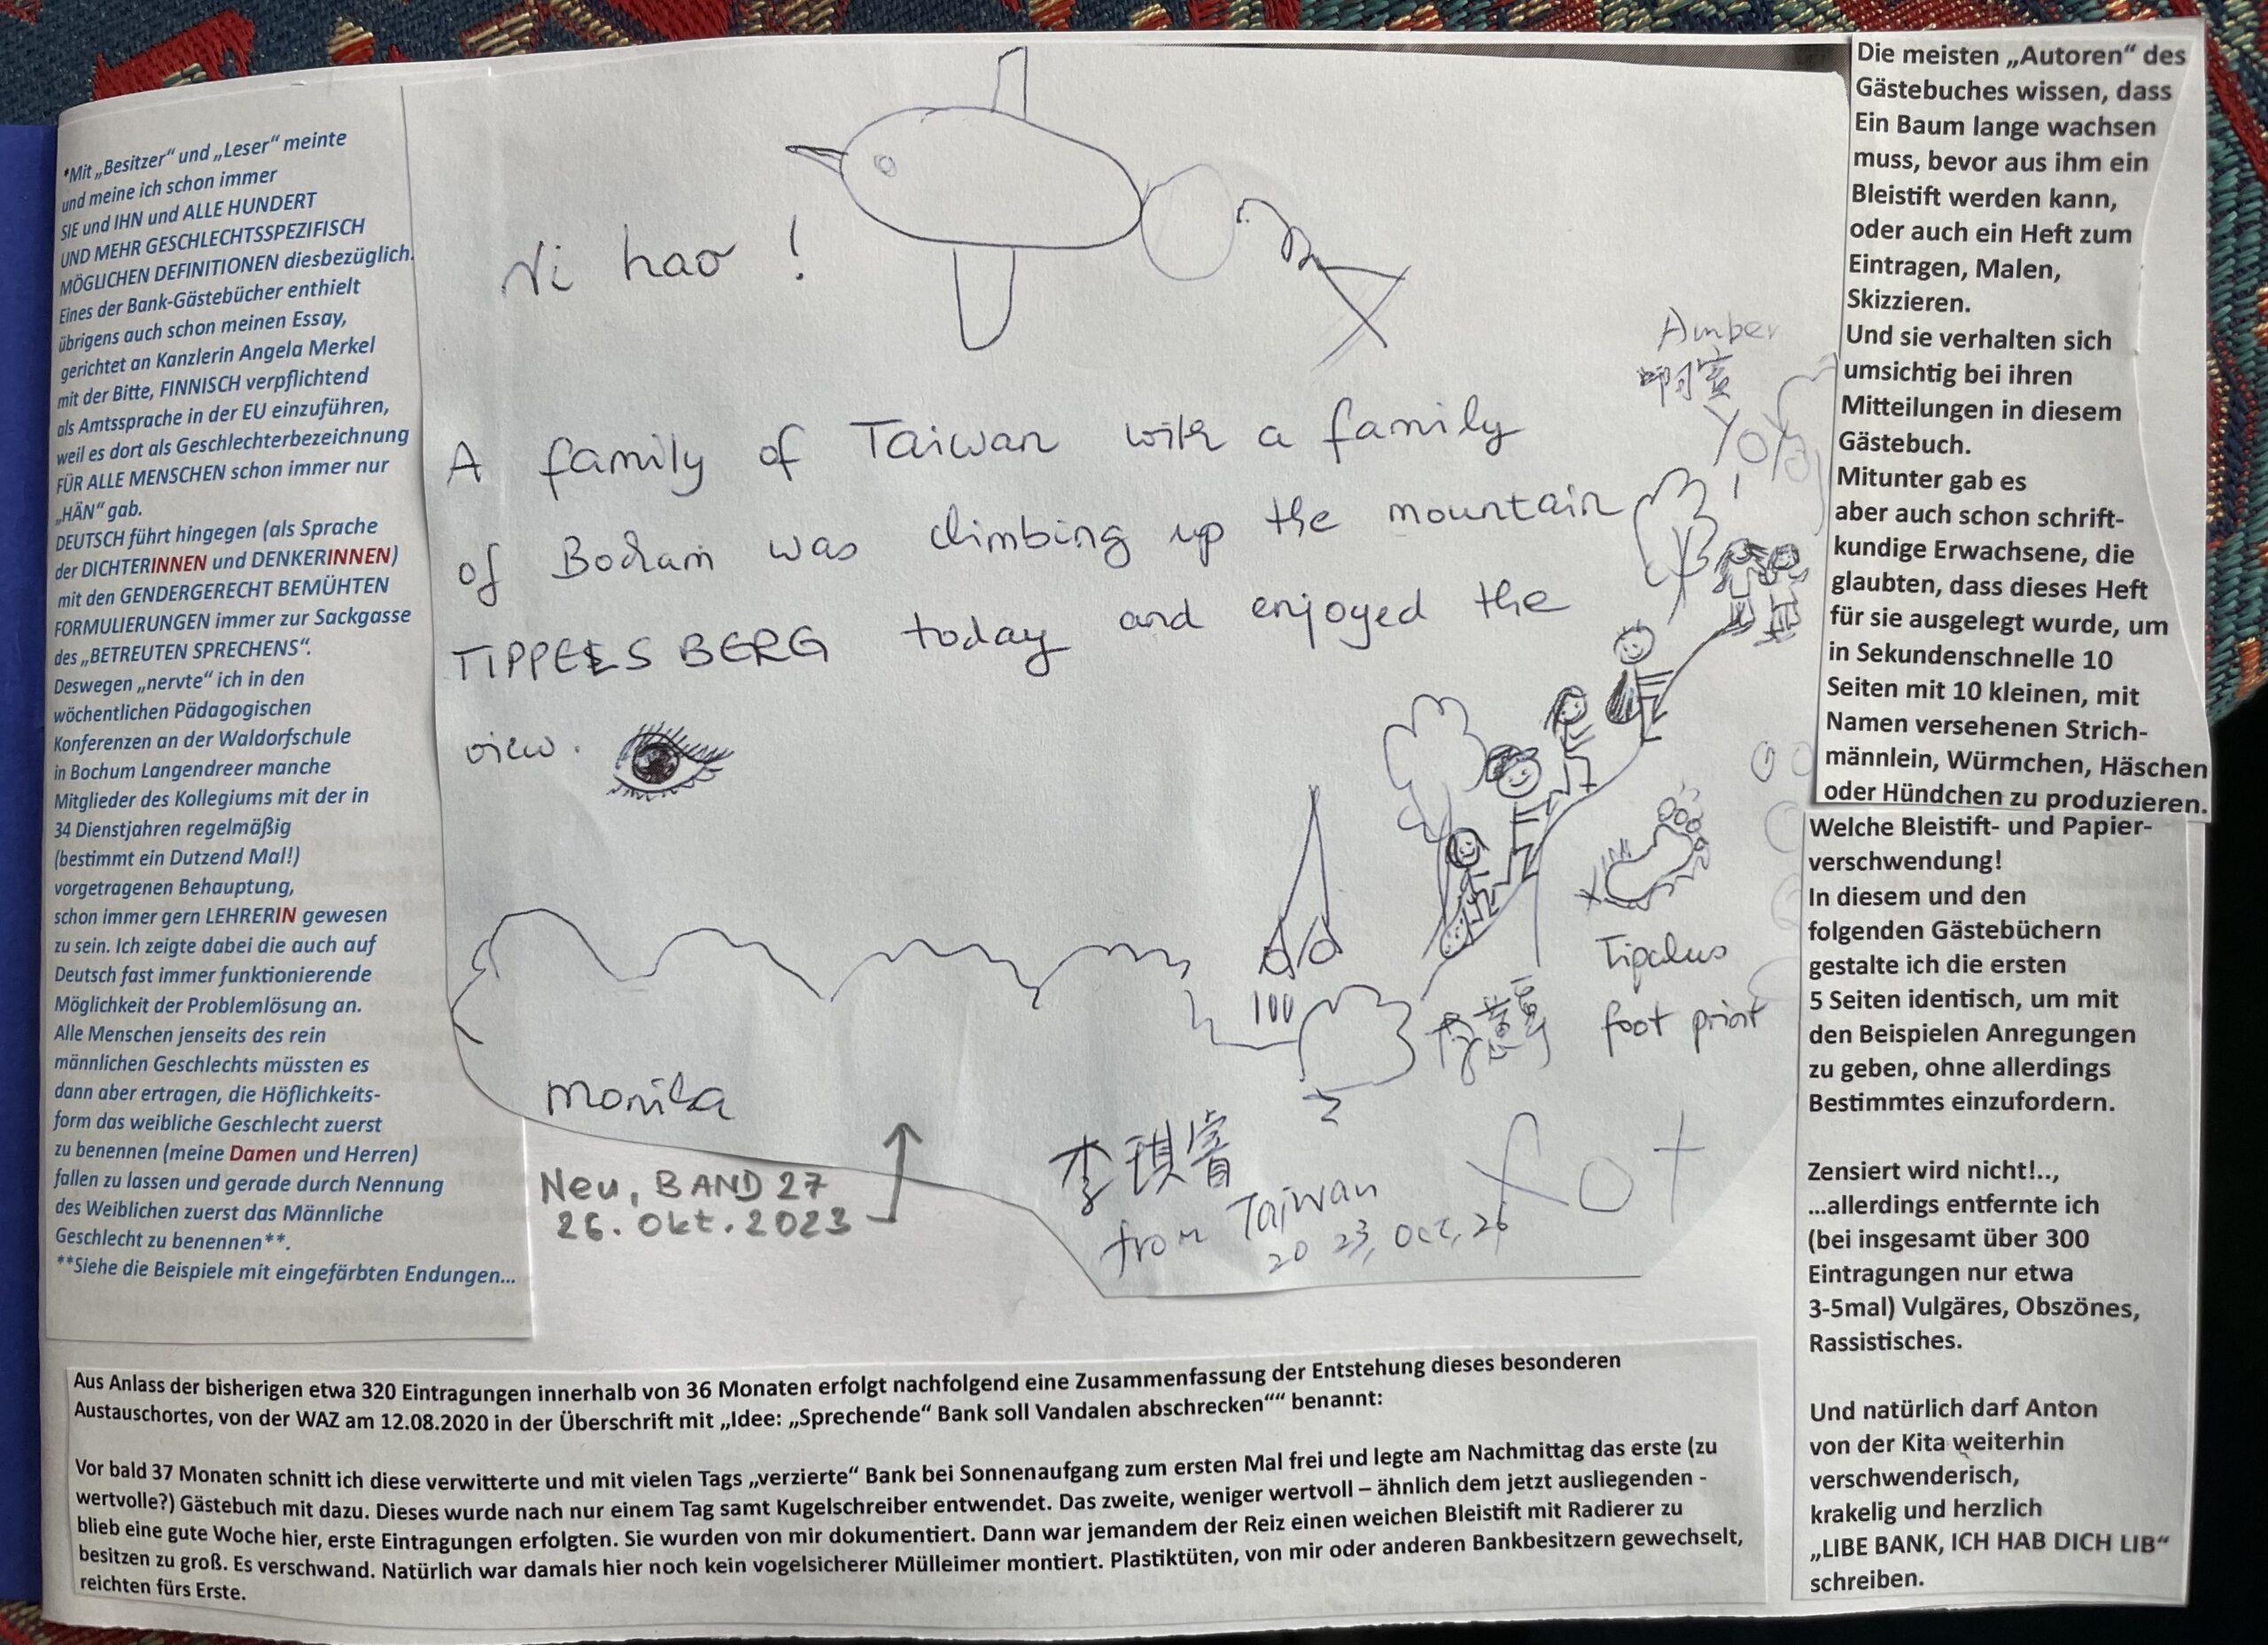 *Mit „Besitzer“ und „Leser“ meinte
und meine ich schon immer
SIE und IHN und ALLE HUNDERT
UND MEHR GESCHLECHTSSPEZIFISCH
MÖGLICHEN DEFINITIONEN diesbezüglich.
Eines der Bank-Gästebücher enthielt
übrigens auch schon meinen Essay,
gerichtet an Kanzlerin Angela Merkel
mit der Bitte, FINNISCH verpflichtend
als Amtssprache in der EU einzuführen,
weil es dort als Geschlechterbezeichnung
FÜR ALLE MENSCHEN schon immer nur
„HÄN“ gab.
DEUTSCH führt hingegen (als Sprache
der DICHTERINNEN und DENKERINNEN)
mit den GENDERGERECHT BEMÜHTEN
FORMULIERUNGEN immer zur Sackgasse
des „BETREUTEN SPRECHENS“.
Deswegen „nervte“ ich in den
wöchentlichen Pädagogischen
Konferenzen an der Waldorfschule
in Bochum Langendreer manche
Mitglieder des Kollegiums mit der in
34 Dienstjahren regelmäßig
(bestimmt ein Dutzend Mal!)
vorgetragenen Behauptung,
schon immer gern LEHRERIN gewesen
zu sein. Ich zeigte dabei die auch auf
Deutsch fast immer funktionierende
Möglichkeit der Problemlösung an.
Alle Menschen jenseits des rein
männlichen Geschlechts müssten es
dann aber ertragen, die Höflichkeits-
form das weibliche Geschlecht zuerst
zu benennen (meine Damen und Herren)
fallen zu lassen und gerade durch Nennung
des Weiblichen zuerst das Männliche
Geschlecht zu benennen**.
**Siehe die Beispiele mit eingefärbten Endungen...
Ni hao !
Amber
YoYo
A family of Taiwan with a family
of Bochum was climbing up the mountain
TIPPELSBERG today and enjoyed the
view.
Tipalus
foot print
100
Monika
李琪
from Taiwan
2023, Oct, 26
Neu, BAND 27
26. Okt. 2023
Die meisten „Autoren“ des
Gästebuches wissen, dass
Ein Baum lange wachsen
muss, bevor aus ihm ein
Bleistift werden kann,
oder auch ein Heft zum
Eintragen, Malen,
Skizzieren.
Und sie verhalten sich
umsichtig bei ihren
Mitteilungen in diesem
Gästebuch.
Mitunter gab es
aber auch schon schrift-
kundige Erwachsene, die
glaubten, dass dieses Heft
für sie ausgelegt wurde, um
in Sekundenschnelle 10
Seiten mit 10 kleinen, mit
Namen versehenen Strich-
männlein, Würmchen, Häschen
oder Hündchen zu produzieren.
Welche Bleistift- und Papier-
verschwendung!
In diesem und den
folgenden Gästebüchern
gestalte ich die ersten
5 Seiten identisch, um mit
den Beispielen Anregungen
zu geben, ohne allerdings
Bestimmtes einzufordern.
Zensiert wird nicht!..,
...allerdings entfernte ich
(bei insgesamt über 300
Eintragungen nur etwa
3-5mal) Vulgäres, Obszönes,
Rassistisches.
Und natürlich darf Anton
von der Kita weiterhin
verschwenderisch,
krakelig und herzlich
„LIBE BANK, ICH HAB DICH LIB“
schreiben.
Aus Anlass der bisherigen etwa 320 Eintragungen innerhalb von 36 Monaten erfolgt nachfolgend eine Zusammenfassung der Entstehung dieses besonderen
Austauschortes, von der WAZ am 12.08.2020 in der Überschrift mit „Idee: „Sprechende“ Bank soll Vandalen abschrecken““ benannt:
Vor bald 37 Monaten schnitt ich diese verwitterte und mit vielen Tags „verzierte“ Bank bei Sonnenaufgang zum ersten Mal frei und legte am Nachmittag das erste (zu
wertvolle?) Gästebuch mit dazu. Dieses wurde nach nur einem Tag samt Kugelschreiber entwendet. Das zweite, weniger wertvoll – ähnlich dem jetzt ausliegenden -
blieb eine gute Woche hier, erste Eintragungen erfolgten. Sie wurden von mir dokumentiert. Dann war jemandem der Reiz einen weichen Bleistift mit Radierer zu
besitzen zu groß. Es verschwand. Natürlich war damals hier noch kein vogelsicherer Mülleimer montiert. Plastiktüten, von mir oder anderen Bankbesitzern gewechselt,
reichten fürs Erste.